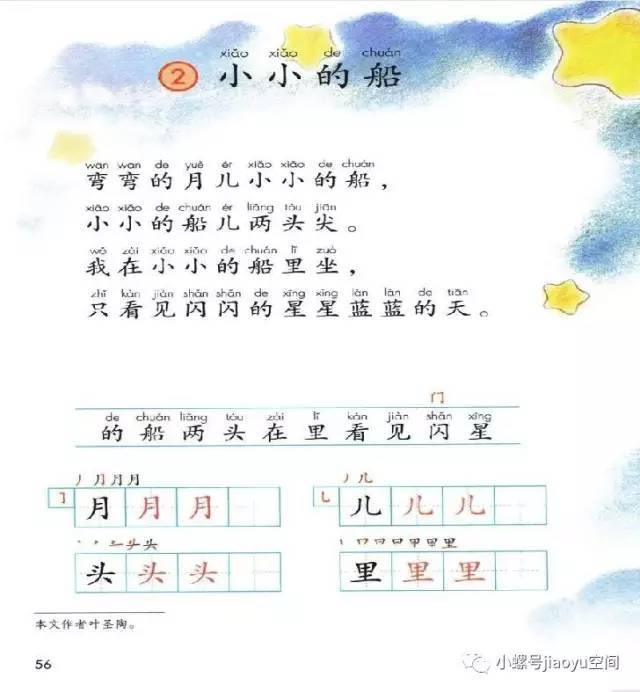 xiǎo xiǎo de chuán
2 小小的船
wān wān de yuè ér xiǎo xiǎo de chuán
弯弯的月儿小小的船，
xiǎo xiǎo de chuán ér liǎng tóu jiān
小小的船儿两头尖。
wǒ zài xiǎo xiǎo de chuán lǐ zuò
我在小小的船里坐，
zhǐ kàn jiàn shǎn shǎn de xīng xing lán lán de tiān
只看见闪闪的星星蓝蓝的天。
门
de chuán liǎng tóu zài lǐ kàn jiàn shǎn xīng
的船两头在里看见闪星
丿 月 月 月
丿 儿
月 月 月
儿 儿 儿
头 头
里
头 头 头
里 里 里
本文作者叶圣陶。
56
小螺号jiaoyu空间